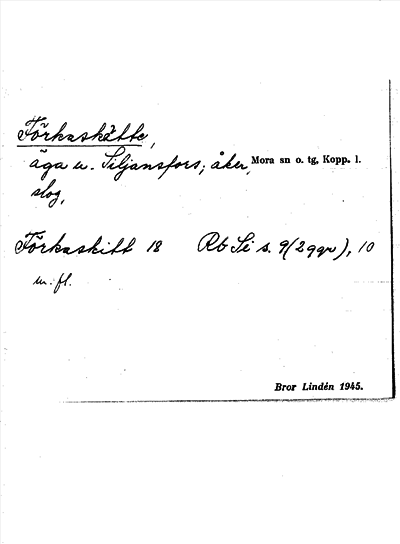 Förkaskätte,
äga u. Siljansfors; åker, Mora sn o. tg, Kopp. l.
slog,
Förkaskitt 18 Rb Si s. 9 (2 ggr), 10
m. fl.
Bror Lindén 1945.